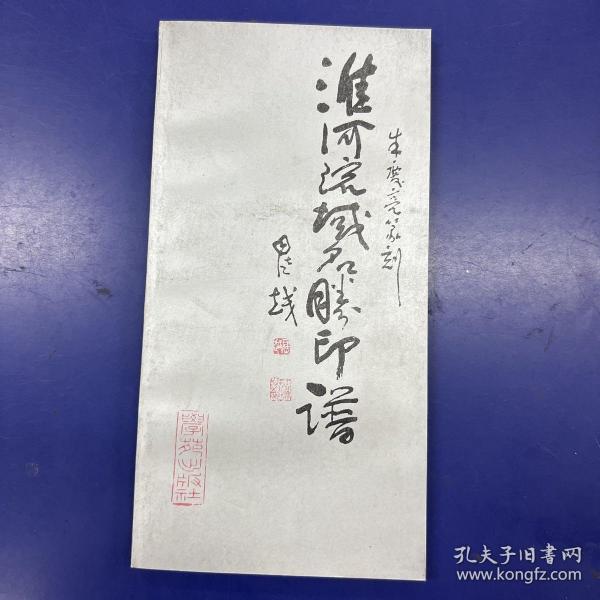 淮河流域名胜印谱
篆刻
學苑出版社
孔夫子旧书网
www.kongfz.com